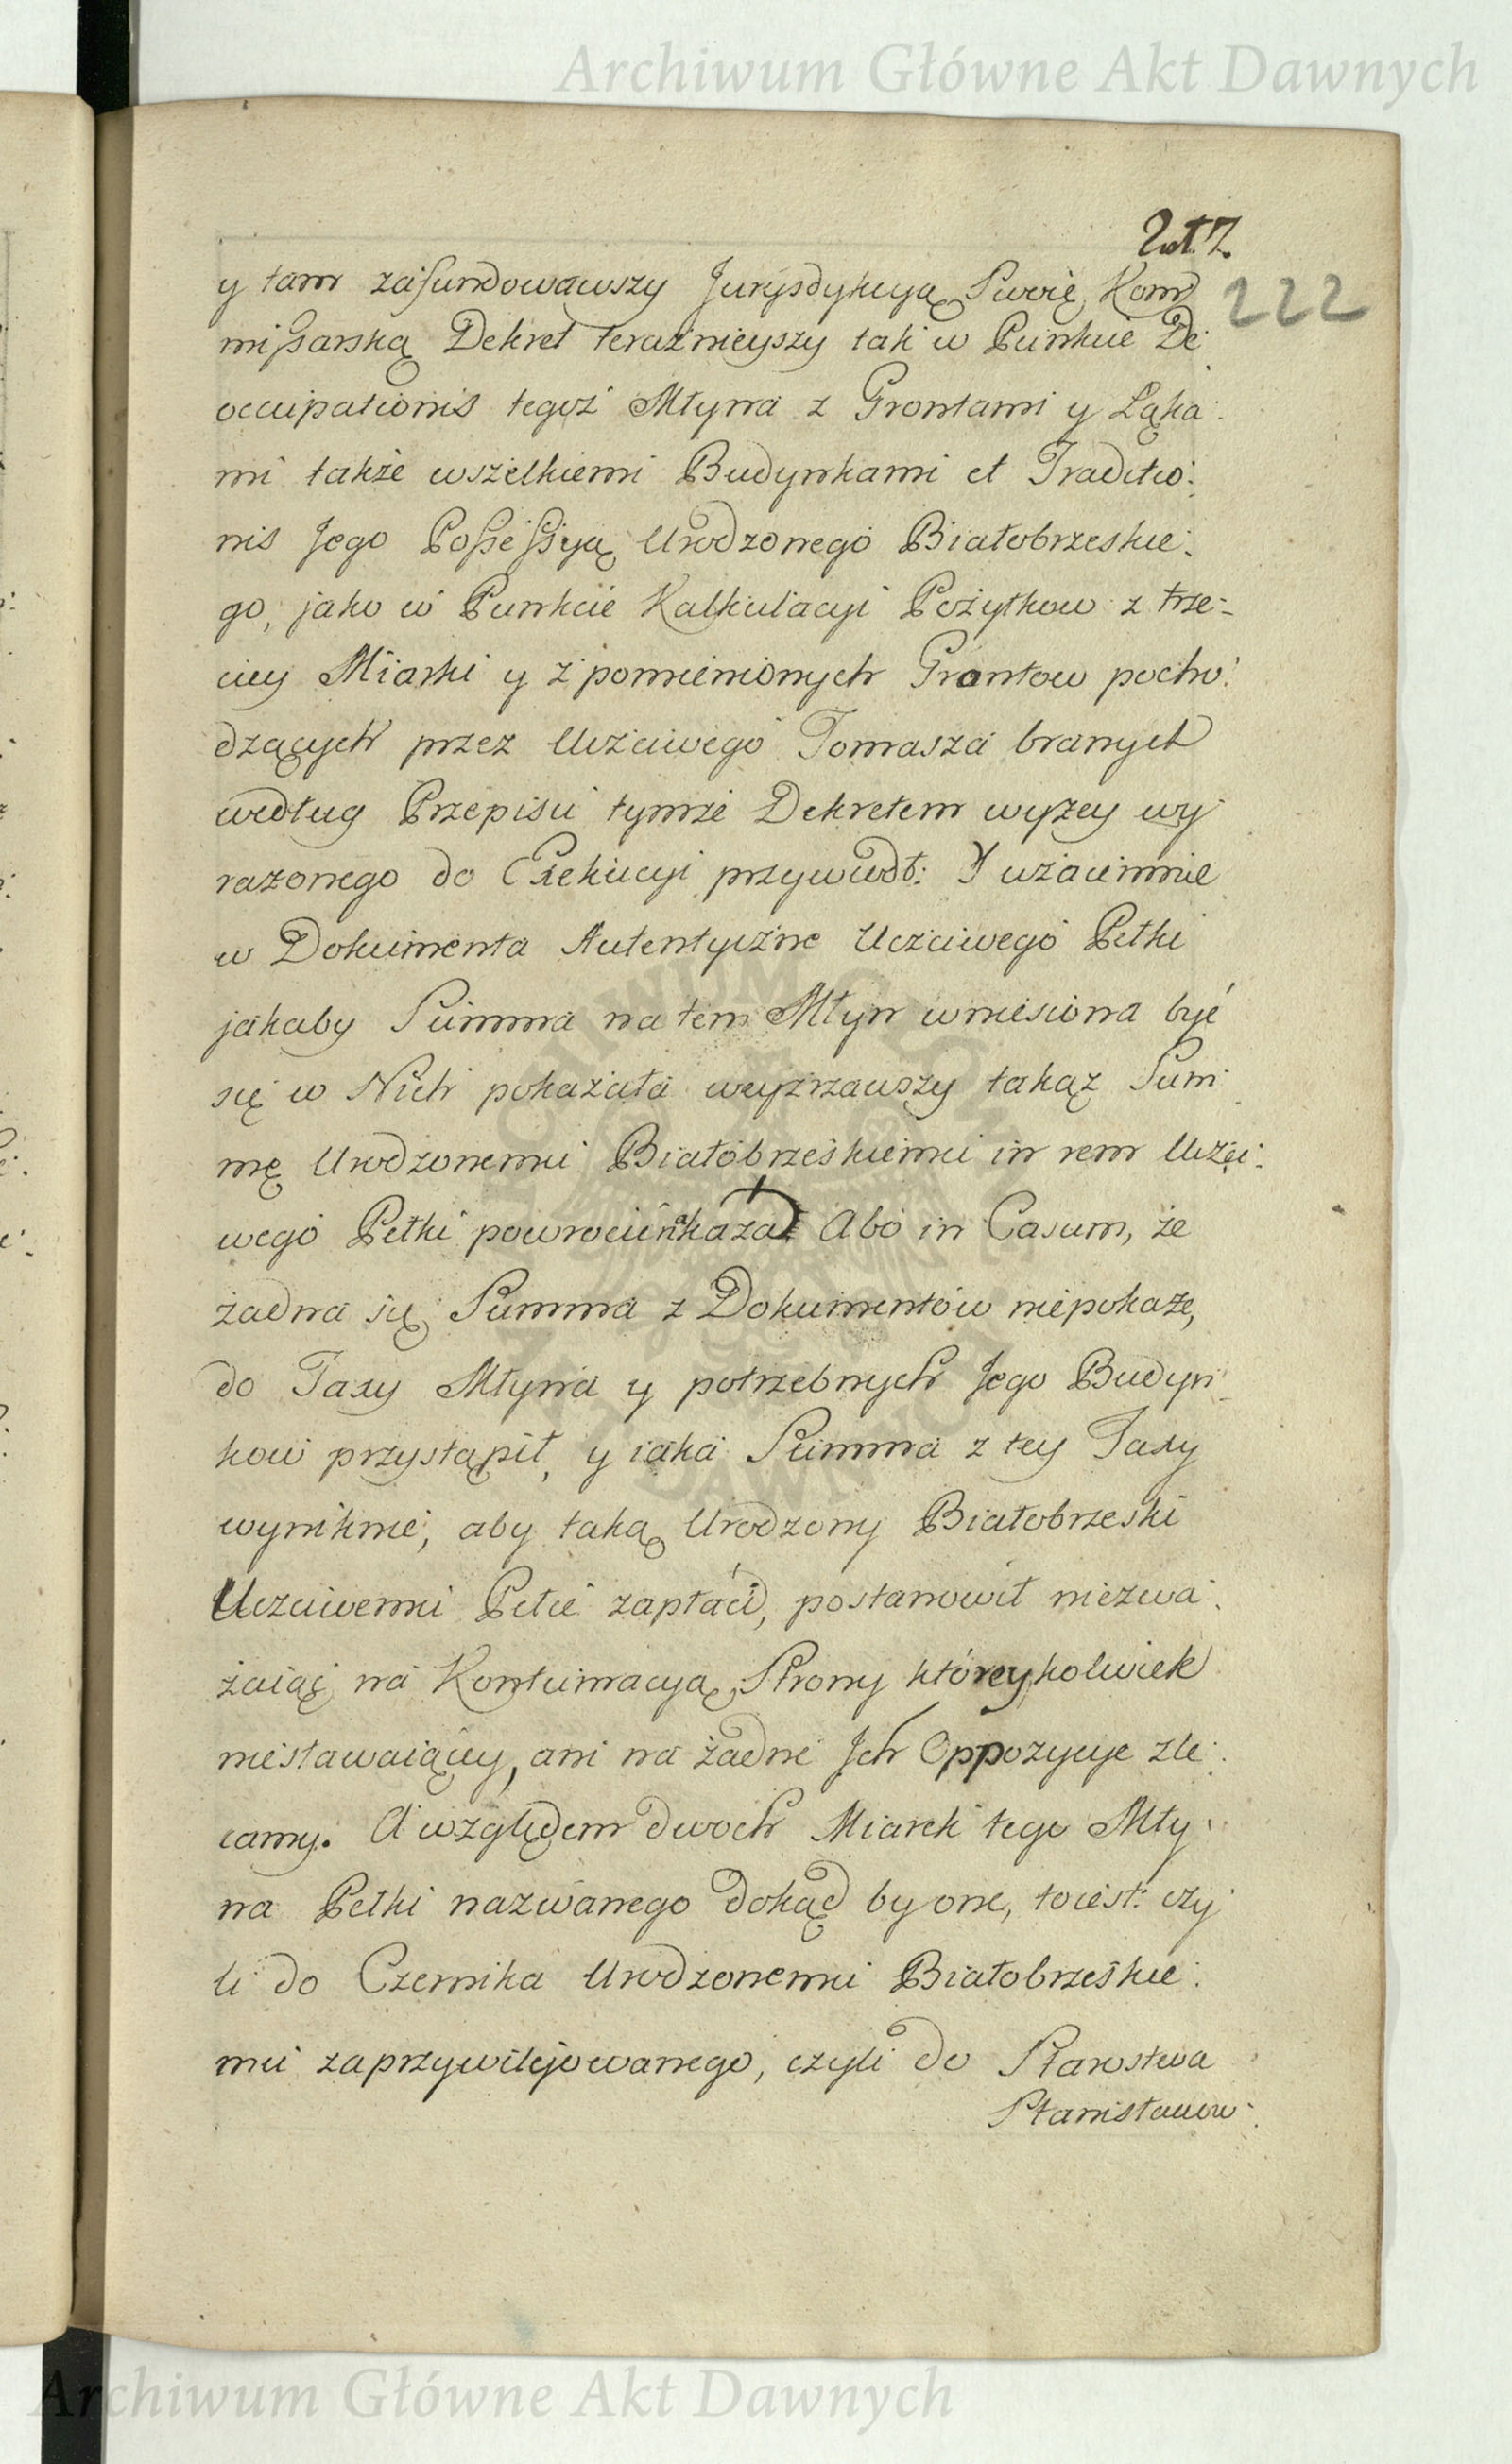 Archiwum Główne Akt Dawnych
222
y tam zafundowawszy Jurysdykcyą Swoię Kom
mißarską Dekret teraznieyszy tak w Punkcie De:
occupationis tegoż Młyna z Grontami y Łąka:
mi także wszelkiemi Budynkami et Traditio:
nis Jego Poßeßyią Urodzonego Białobrzeskie:
go, jako w Punkcie Kalkulacyi Pożytkow z trze:
ciey Miarki y z pomienionych Grontow pocho:
dzących przez Uczciwego Tomasza branych
według Przepisu tymże Dekretem wyżey wy
rażonego do Exekucyi przywiodł: Y
w Dokumenta Autentyczne Uczciwego Pełki
jakaby Summa na tem Młyn wniesiona być
się w Nich pokazała weyzrzawszy takąż Sum
mę Urodzonemu Białobrzeskiemu in rem Uczci:
wego Pełki powrocić nakazał Abo in Casum, że
żadna się Summa z Dokumentów niepokaże,
do Taxy Młyna y potrzebnych Jego Budyn:
kow przystąpił, y iaka Summa z tey Taxy
wyniknie, aby taką Urodzony Białobrzeski
Uczciwemu Pełce zapłacił, postanowił niezwa:
żaiąc na Kontumacyą Strony któreykolwiek
niestawaiącey, ani na żadne Jch Oppozycye zle:
camy. A względem dwoch Miarek tego Mły:
na Pełki nazwanego dokąd by one, toiest: czy
li do Czernika Urodzonemu Białobrzeskie:
mu zaprzywilejowanego, czyli do Starostwa
Stanisławow:
Archiwum Główne Akt Dawnych